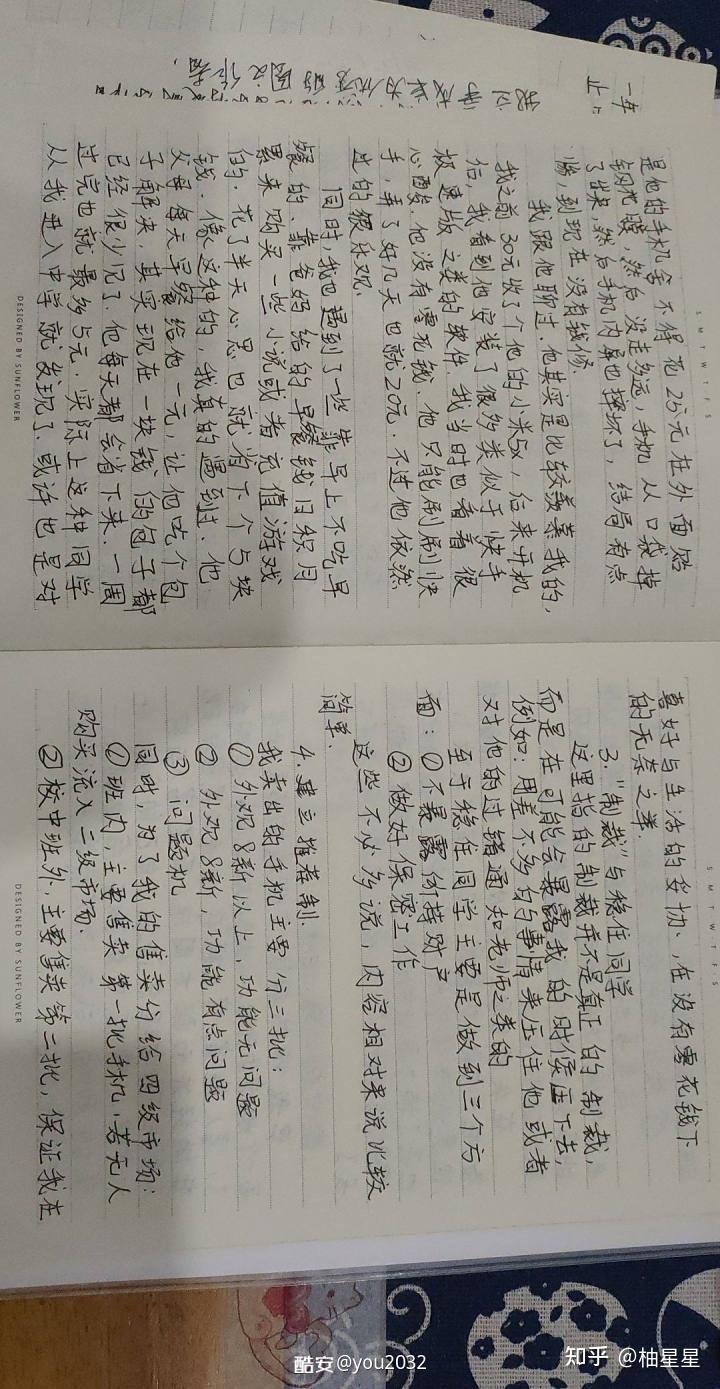 是他的手机舍不得花25元在外面贴
钢化膜,然后没走多远,手机从口袋掉
了出来,然后手机内屏也摔坏了,结局有点
惨,到现在没有钱修.
我跟他聊过.他其实是比较羡慕我的,
我之前30元收了个他的小米5x,后来开机
后,我看到他安装了很多类似于快手
极速版之类的软件.我当时也看着很
心酸.他没有零花钱.他只能刷刷快
手,弄了好几天也就20元.不过他依然
过的很乐观.
同时,我也遇到了一些靠早上不吃早
餐的、靠爸妈给的早餐钱日积月
累来购买一些小说或者充值游戏
的.花了半天心思也就省下个5块
钱.像这种的,我真的遇到过.他
父母每天早餐给他一元,让他吃个包
子解决,其实现在一块钱的包子都
已经很少见了.他每天都会省下来.一周
过完也就最多5元.实际上这种同学
从我进入中学就发现了.或许也是对
DESIGNED BY SUNFLOWER
S M T W T F S
喜好与生活的妥协、在没有零花钱下
的无奈之举.
3.“制裁”与稳住同学
这里指的制裁并不是真正的制裁,
而是在可能会暴露我的时候压下去,
例如:用差不多的事情来压住他或者
对他的过错通知老师之类的
至于稳住同学主要是做到三个方
面:①不暴露倒转财产
②做好保密工作
这些不必多说,内容相对来说比较
简单.
4.建立推荐制.
我卖出的手机主要分三批:
①外观8新以上,功能无问题
②外观8新,功能有点问题
③问题机
同时,为了我的售卖分给四级市场:
①班内,主要售卖第一批手机,若无人
购买流入二级市场.
②校中班外.主要售卖第二批,保证我在
DESIGNED BY SUNFLOWER
S M T W T F S
酷安@you2032
知乎 @柚星星